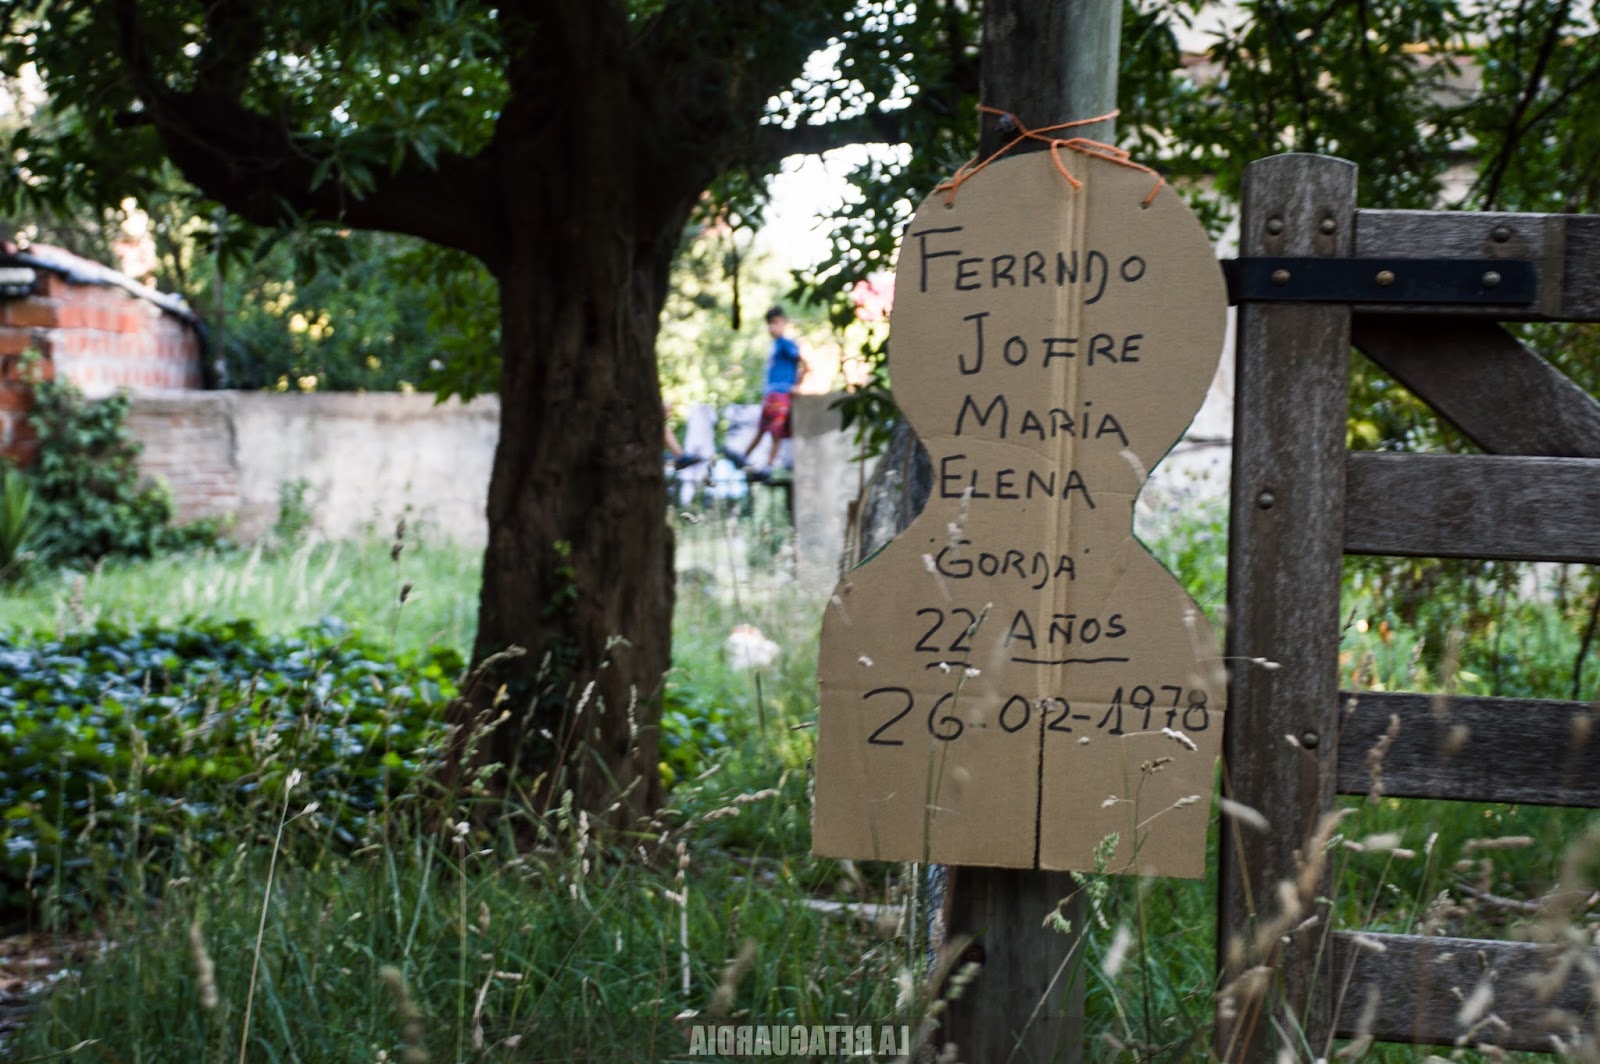 FERRNDO
JOFRE
MARiA
ELENA
"GORDA"
22 AÑOS
26-02-1978
LA RETAGUARDIA